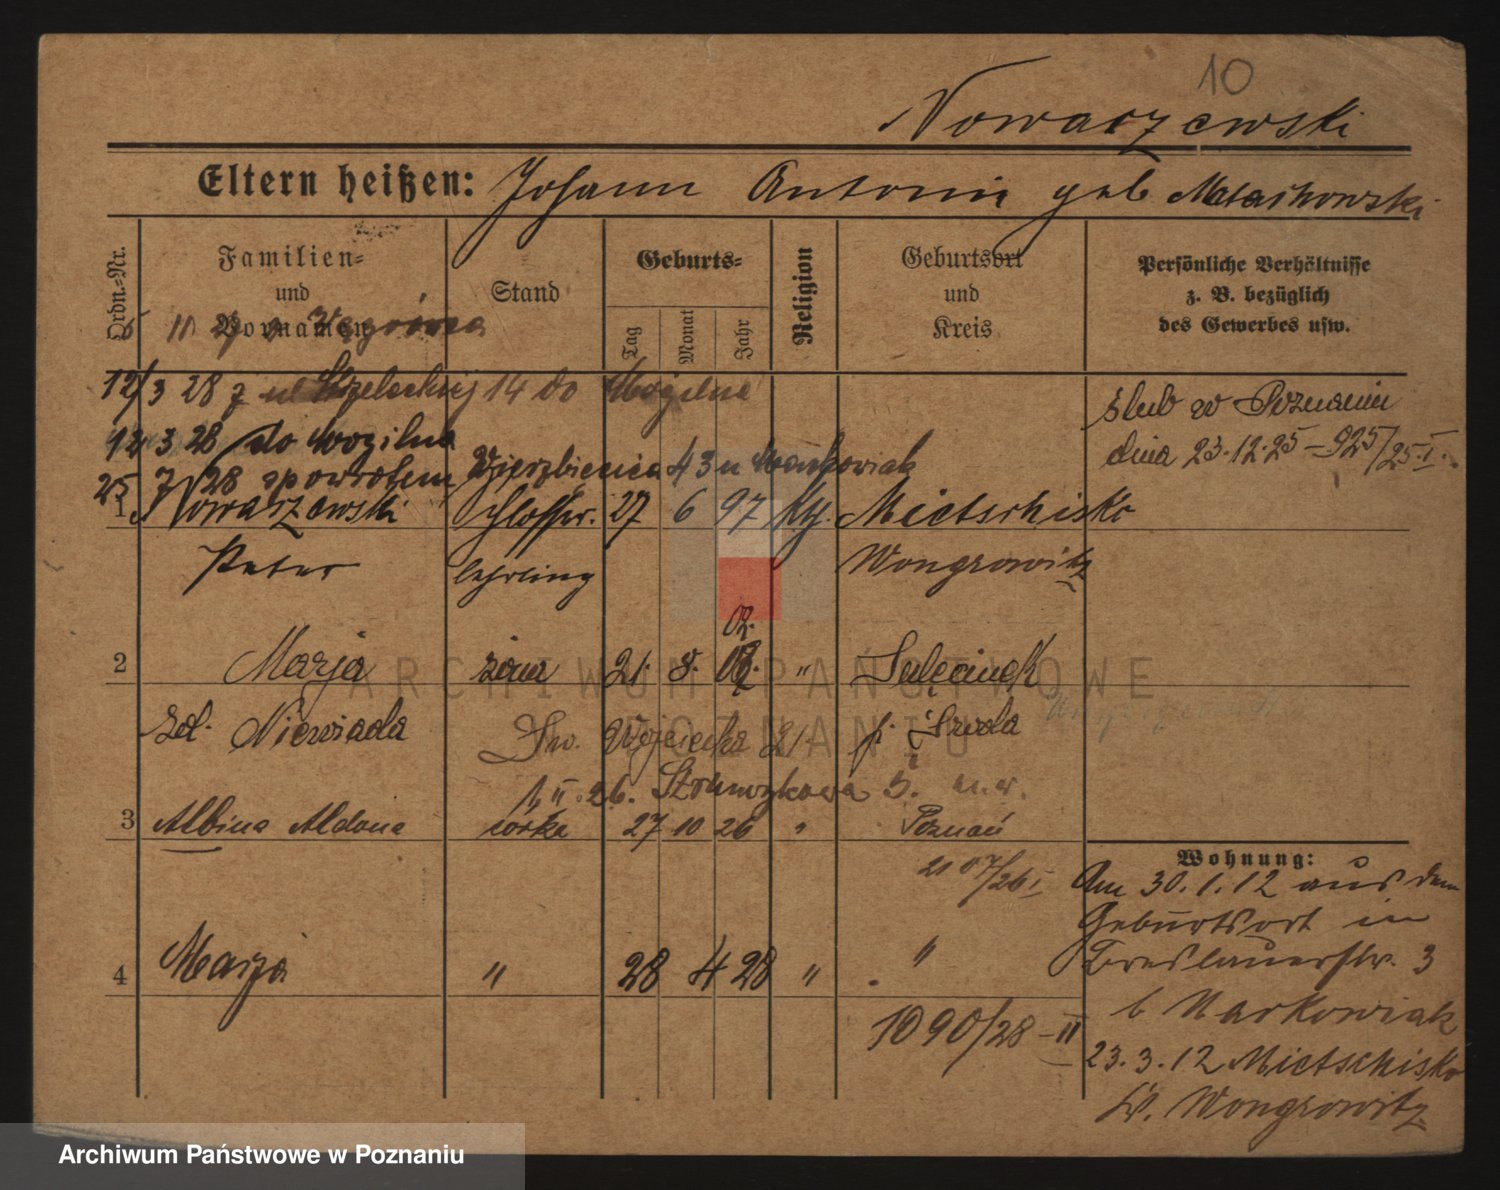 10
Nowaczewski
Eltern heißen: Johann Antonin geb
Ordn.-Nr.
Familien- und Vornamen
Stand
Geburts-
Tag
Monat
Jahr
Religion
Geburtsort und Kreis
Persönliche Verhältnisse z. B. bezüglich des Gewerbes usw.
12/3 28 z ul 14 do Mogilna
12 3 28 do Mogilna
25 7 28 spowrotem Wierzbięcice 43 u Markowiak
ślub w Poznaniu
dnia 23.12.25 – 925/25 I.
1 Nowaczewski Schlosser. 27 6 97 Kth. Mietschisko
Peter lehrling Wongrowitz
2 Marja żona 21. 8. 02. " Sulęcinek
zd. Niewiada Św. Wojciecha 21. p. Środa
II. 26. 3. m.w.
3 Albina Aldona córka 27 10 26 " Poznań
2107/26 I
4 Marja " 28 4 28 " "
1090/28 – II
Wohnung:
Am 30.1.12 aus dem
Geburtsort in
Breslauerstr. 3
b Markowiak
23.3.12 Mietschisko
Kr. Wongrowitz
ARCHIWUM PAŃSTWOWE
POZNANIU
Archiwum Państwowe w Poznaniu